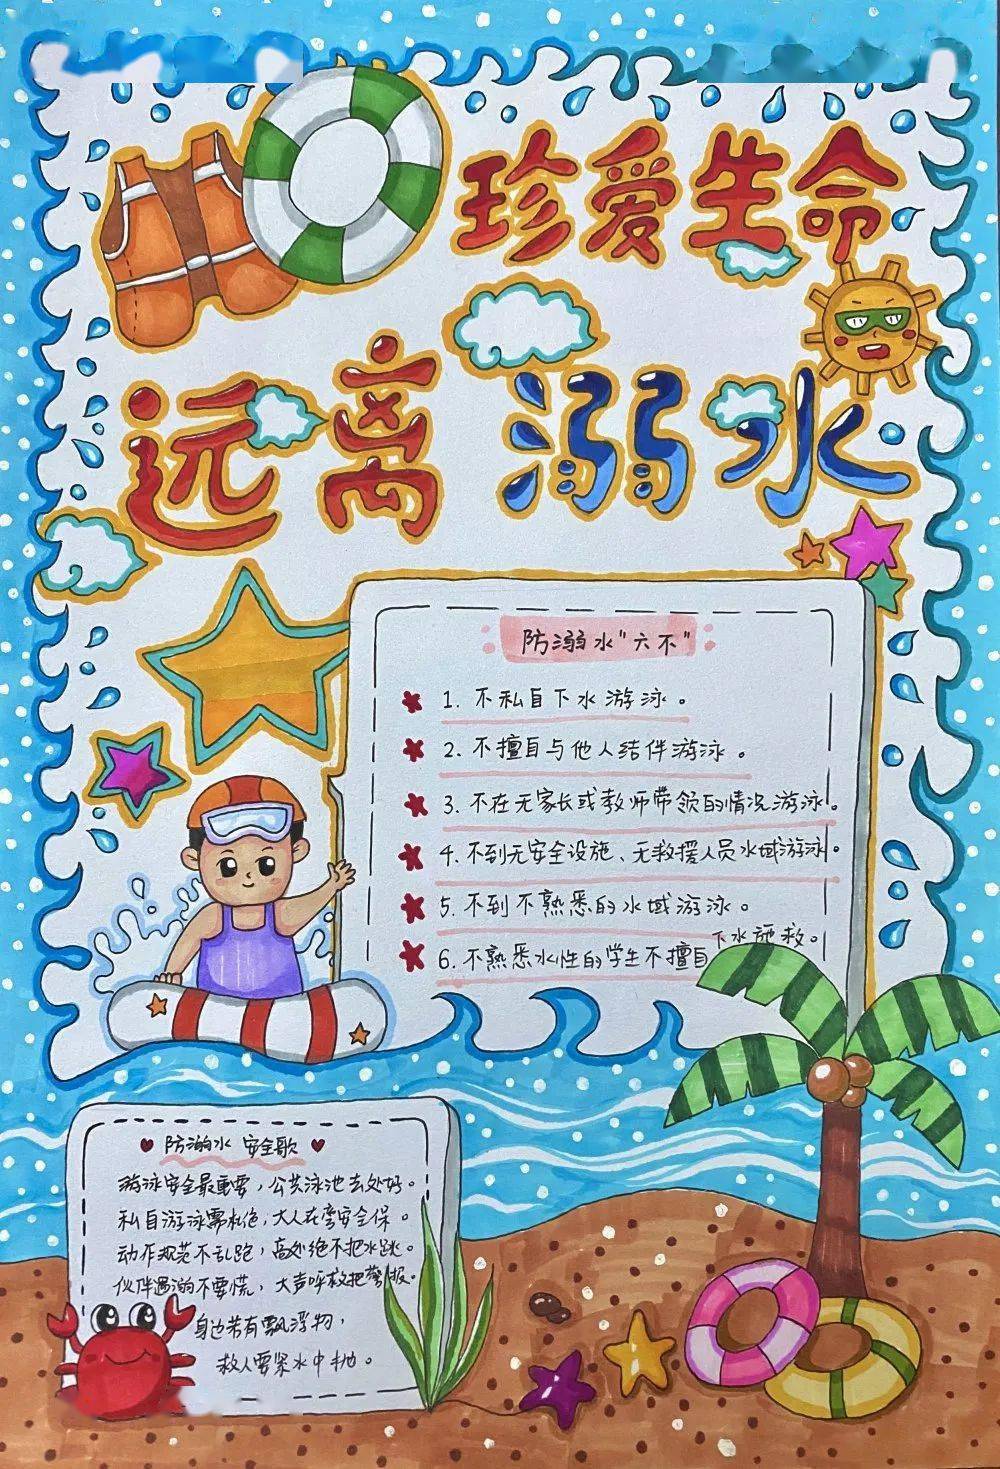 珍爱生命
远离溺水
防溺水"六不"
1. 不私自下水游泳。
2. 不擅自与他人结伴游泳。
3. 不在无家长或教师带领的情况游泳。
4. 不到无安全设施、无救援人员水域游泳。
5. 不到不熟悉的水域游泳。
6. 不熟悉水性的学生不擅自下水施救。
防溺水 安全歌
游泳安全最重要，公共泳池去处好。
私自游泳需杜绝，大人在旁安全保。
动作规范不乱跑，高处绝不把水跳。
伙伴遇溺不要慌，大声呼救把警报。
身边若有飘浮物，
救人要紧水中抛。